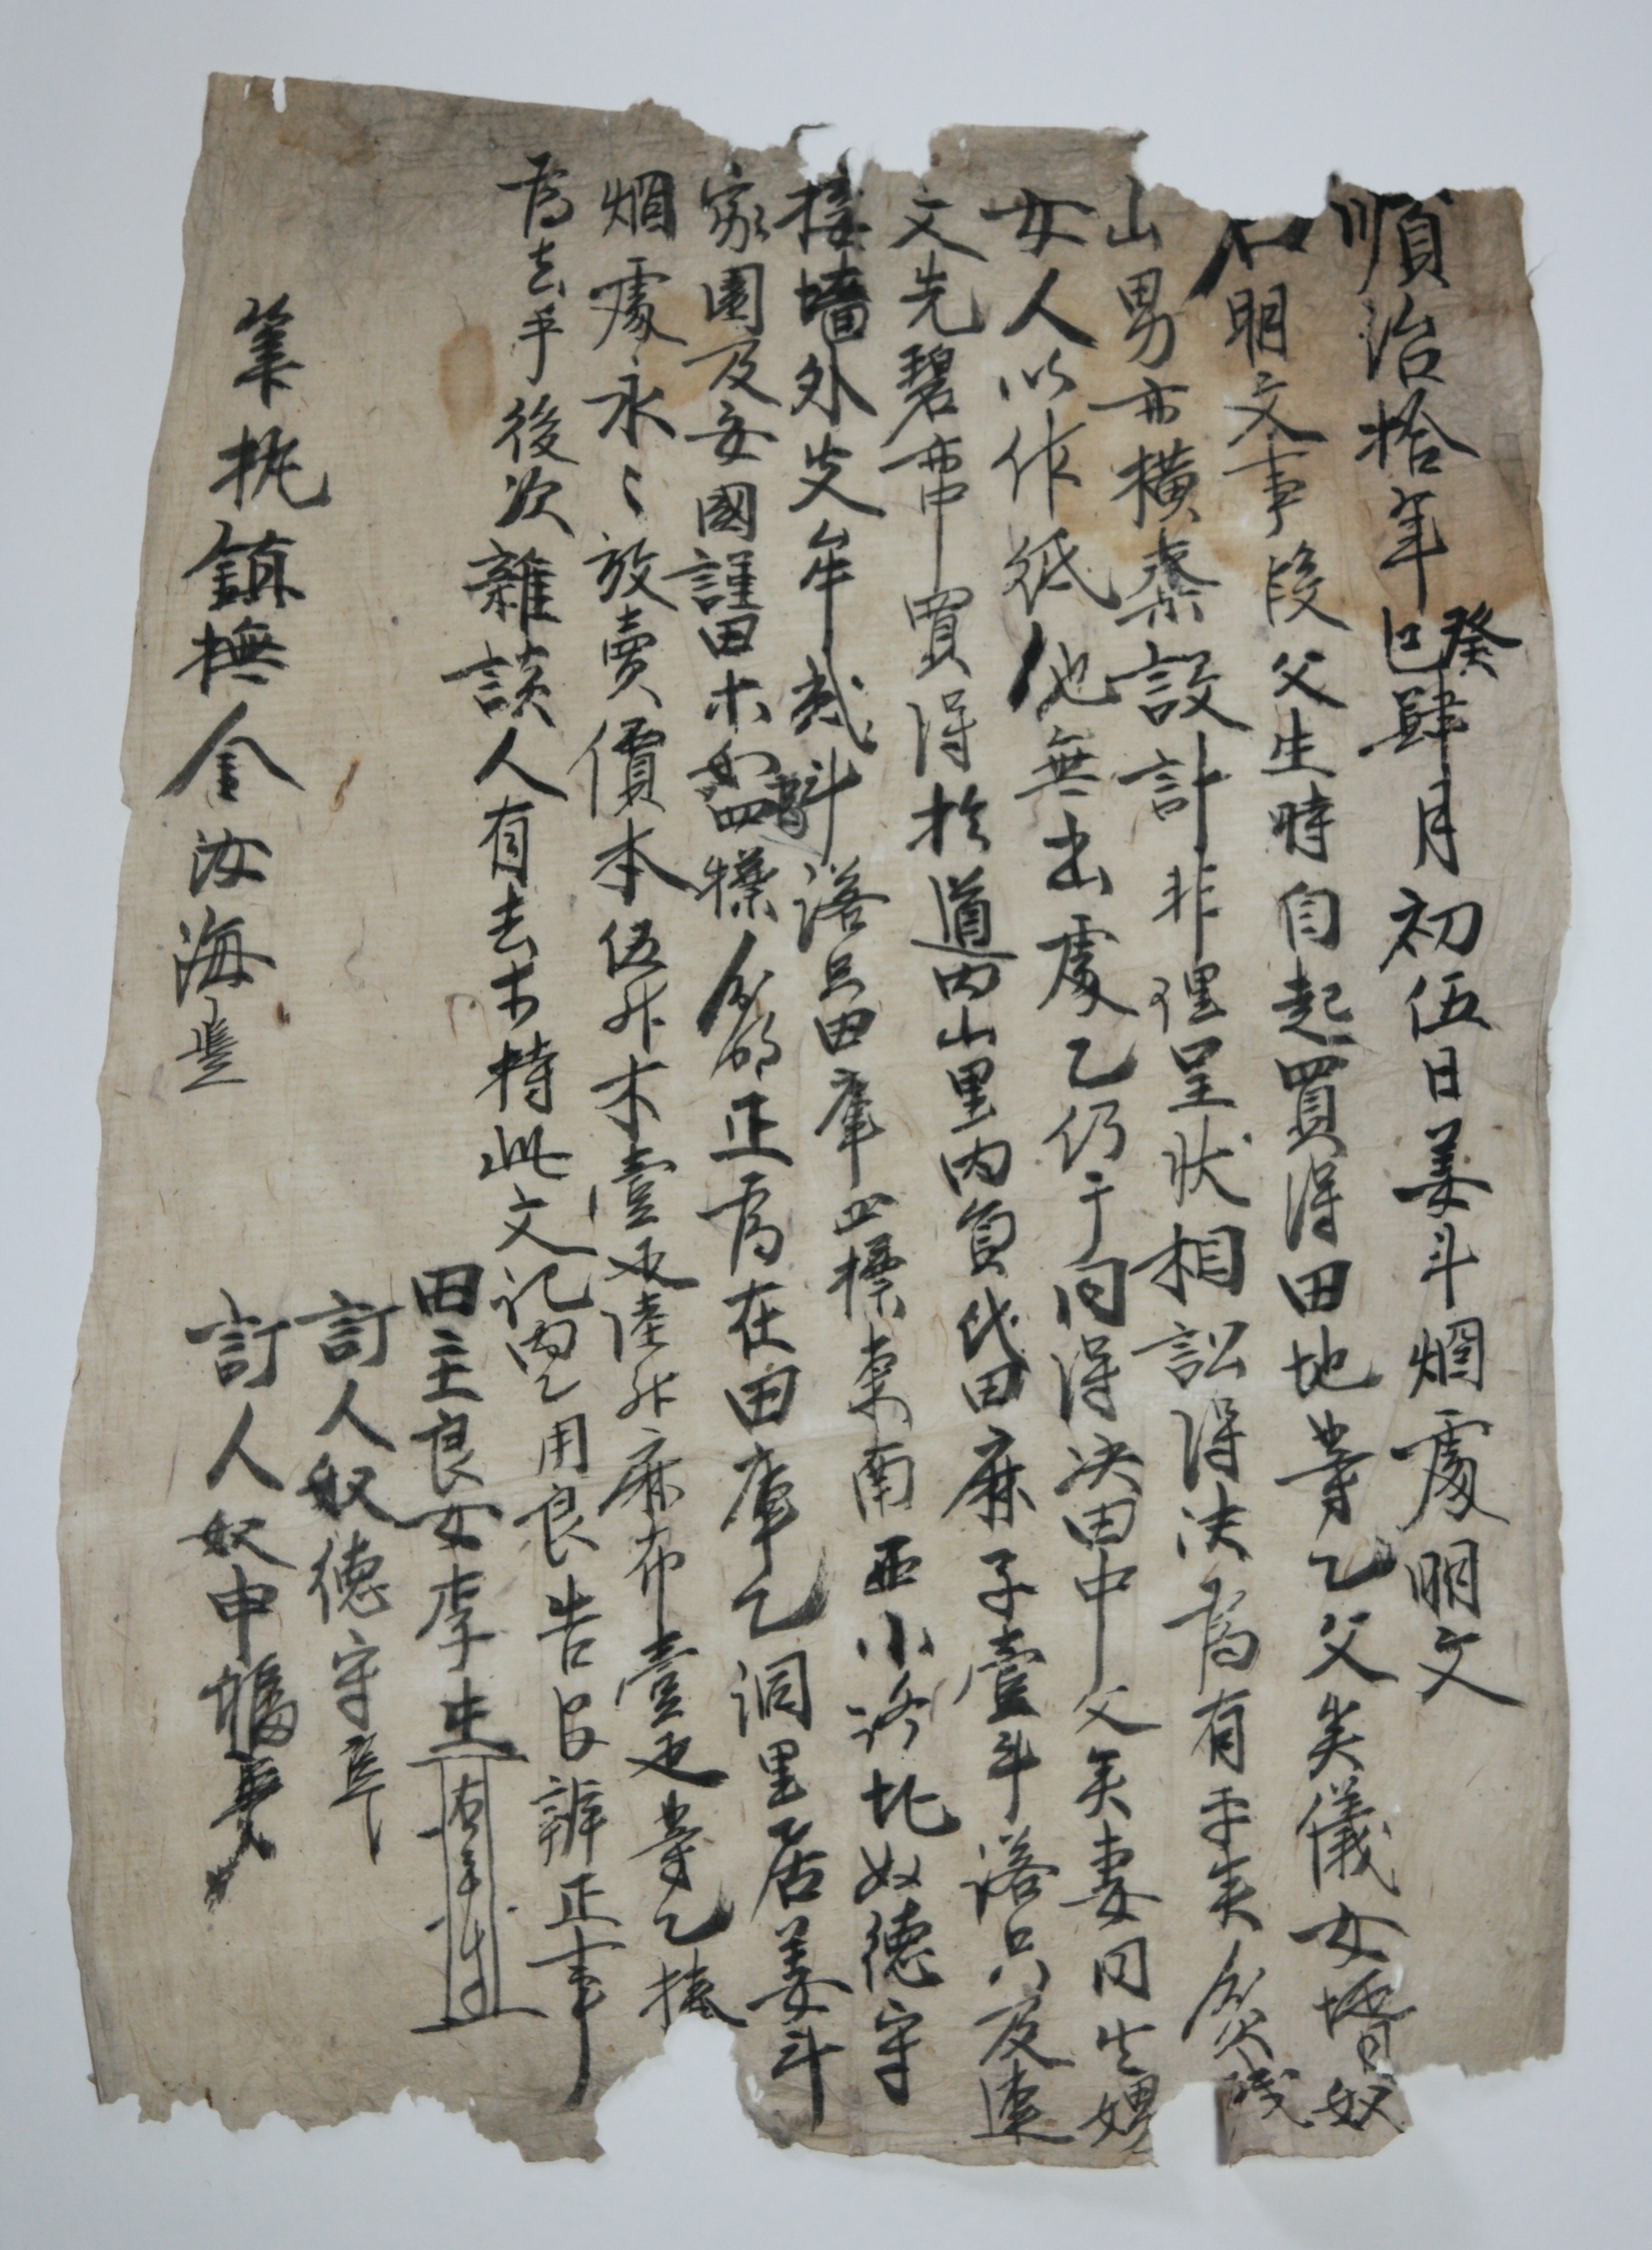 順治拾年癸巳肆月初伍日姜斗烟處明文
右明文事段父生時自起買得田地等乙父矣儀女壻奴
山男亦橫奪設計非理呈狀相訟得決爲有乎矣貧殘
女人以作紙他無出處乙仍于同得決田中父矣妻同生娚
文先碧亦中買得於道內山里內員代田麻子壹斗落只及連
接墻外叱牟貳斗落只田庫四標東南西小路北奴德守
家園及安國謹田木如四標分明正爲在田庫乙洞里居姜斗
烟處永永放賣價本伍升木壹疋陸升麻布壹疋等乙捧
爲去乎後次雜談人有去等持此文記內乙用良告官辨正事
田主良女李生右手寸
訂人奴德守
訂人奴申
筆執鎭撫金汝海